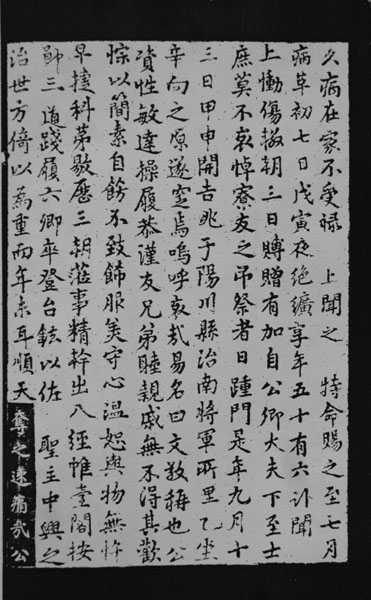 久病在家不受祿　上聞之　特命賜之至七月
病革初七日戊寅夜絶纊享年五十有六訃聞
上慟傷輟朝三日賻贈有加自公卿大夫下至士
庶莫不哀悼寮友之吊祭者日踵門是年九月十
三日甲申開吉兆于陽川縣治南將軍所里乙坐
辛向之原遂窆焉嗚呼哀哉易名曰文敎稱也公
資性敏達操履恭謹友兄弟睦親戚無不得其歡
悰以簡素自飭不致飾服美守心溫恕與物無忤
早擢科第歇歷三朝莅事精幹出入經帷臺閣按
節三道踐履六卿卒登台鉉以佐　聖主中興之
治世方倚以爲重而年未耳順天奪之速痛哉公